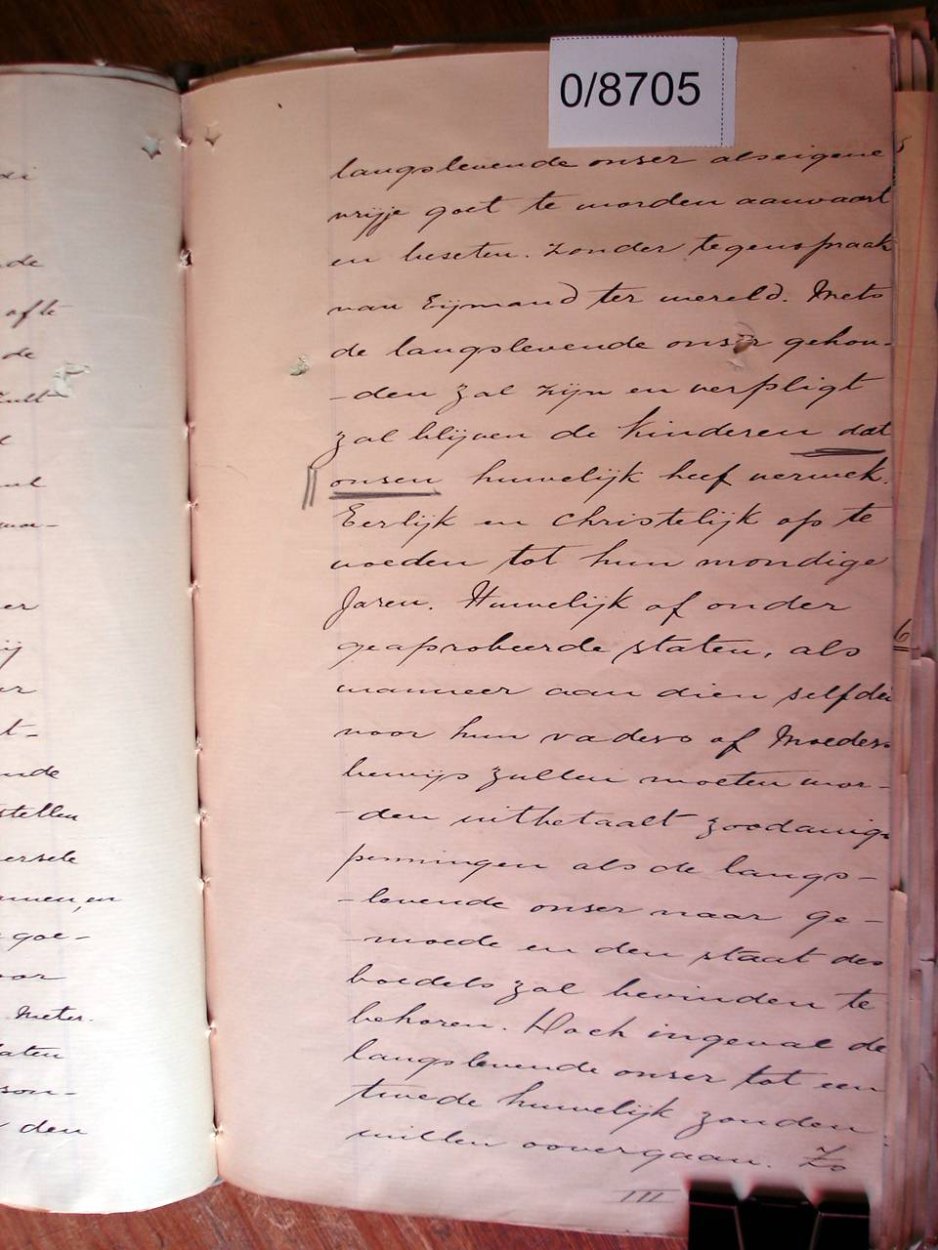 0/8705
langslevende onser als eigene
vrijje goet te worden aanvaart
en beseten. Zonder tegenspraak
van Eijmand ter wereld. Mets
de langslevende onser gehou-
-den zal zijn en verpligt
zal blijven de kinderen dat
onsen huwelijk heef verwek.
Eerlijk en christelijk op te
voeden tot hun mondige
Jaren. Huwelijk of onder
geaprobeerde staten, als
wanneer aan dien selfde
voor hun vaders of Moeders
bewijs zullen moeten wor-
-den uitbetaalt zoodanige
penningen als de langs-
-levende onser naar ge-
-moede en den staat des
boedels zal bevinden te
behoren. Doch ingeval de
langslevende onser tot een
twede huwelijk zouden
willen oovergaan. Zo
III
6
de
afte
de
er
ij
nde
stellen
goe-
oor
Meter.
aten
son-
den